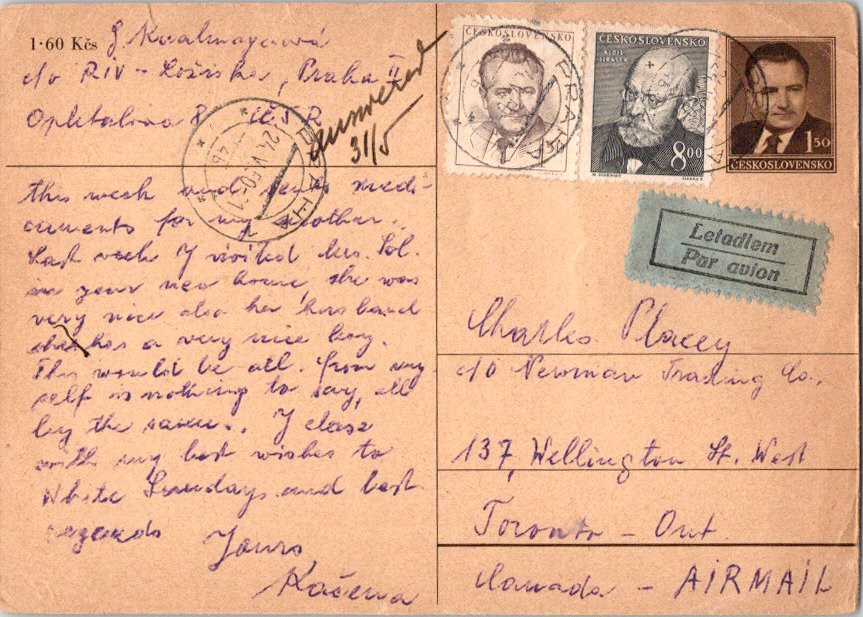 1·60 Kčs
c/o RIV - Ložiska, Praha II
Opletalova 8 ČSR
answered
31/5
PRAHA
24.V.50-11
this week and send medi-
caments for my mother.
Last week I visited Mrs. Sol.
in your new house, she was
very nice also her husband
she has a very nice boy.
This would be all. from my-
self is nothing to say, all
by the same. I close
with my best wishes to
White Sundays and best
regards
Yours
Kačena
ČESKOSLOVENSKO
ČESKOSLOVENSKO
ALOIS
JIRÁSEK
8.00
1.50
ČESKOSLOVENSKO
PRAHA
Letadlem
Par avion
Charles Placey
c/o Newman Trading Co.,
137, Wellington St. West
Toronto - Ont.
Canada - AIRMAIL